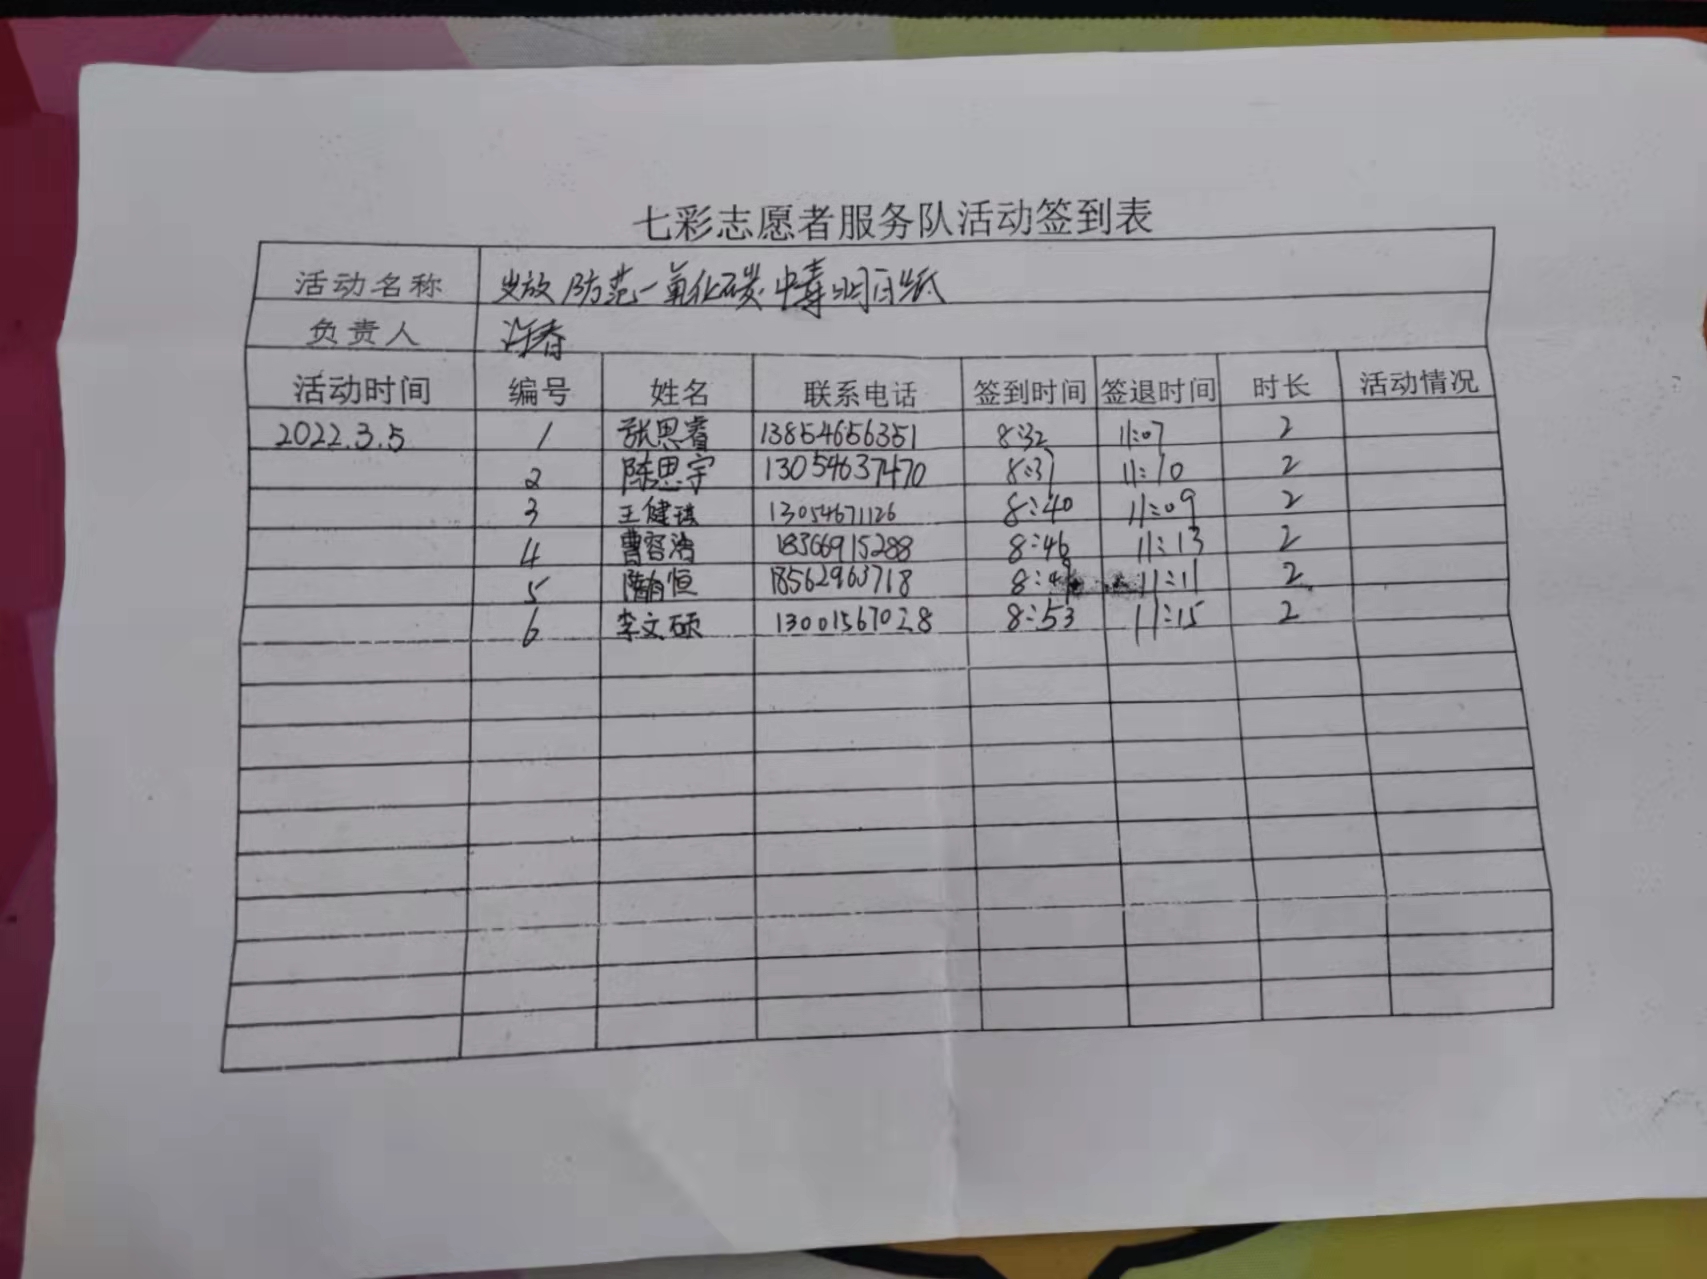 七彩志愿者服务队活动签到表
活动名称 发放防范一氧化碳中毒明白纸
负责人 许春
活动时间 编号 姓名 联系电话 签到时间 签退时间 时长 活动情况
2022.3.5 1 张思睿 13854656351 8:32 11:07 2
2 陈思宇 13054637470 8:37 11:10 2
3 王健琪 13054671126 8:40 11:09 2
4 曹容浩 18366915288 8:46 11:13 2
5 隋有恒 18562963718 11:11 2
6 李文硕 13001567028 8:53 11:15 2